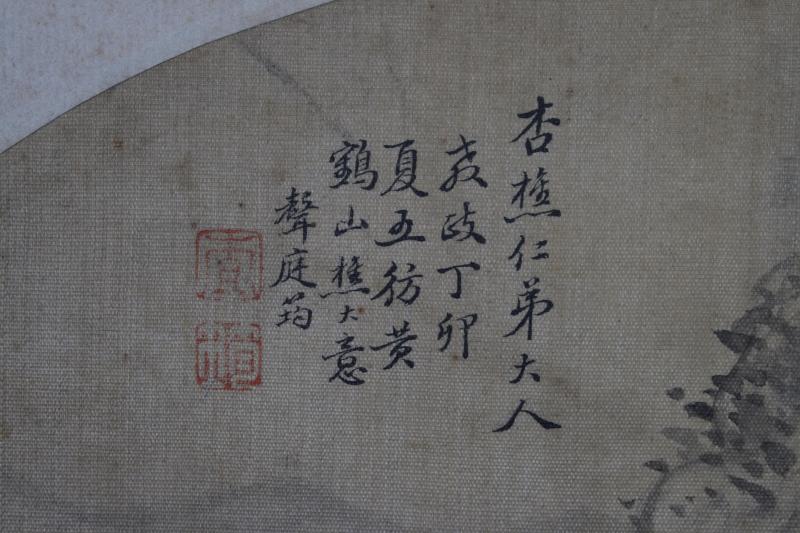 杏樵仁弟大人
教政丁卯
夏五彷黄
鶴山樵大意
聲庭筠